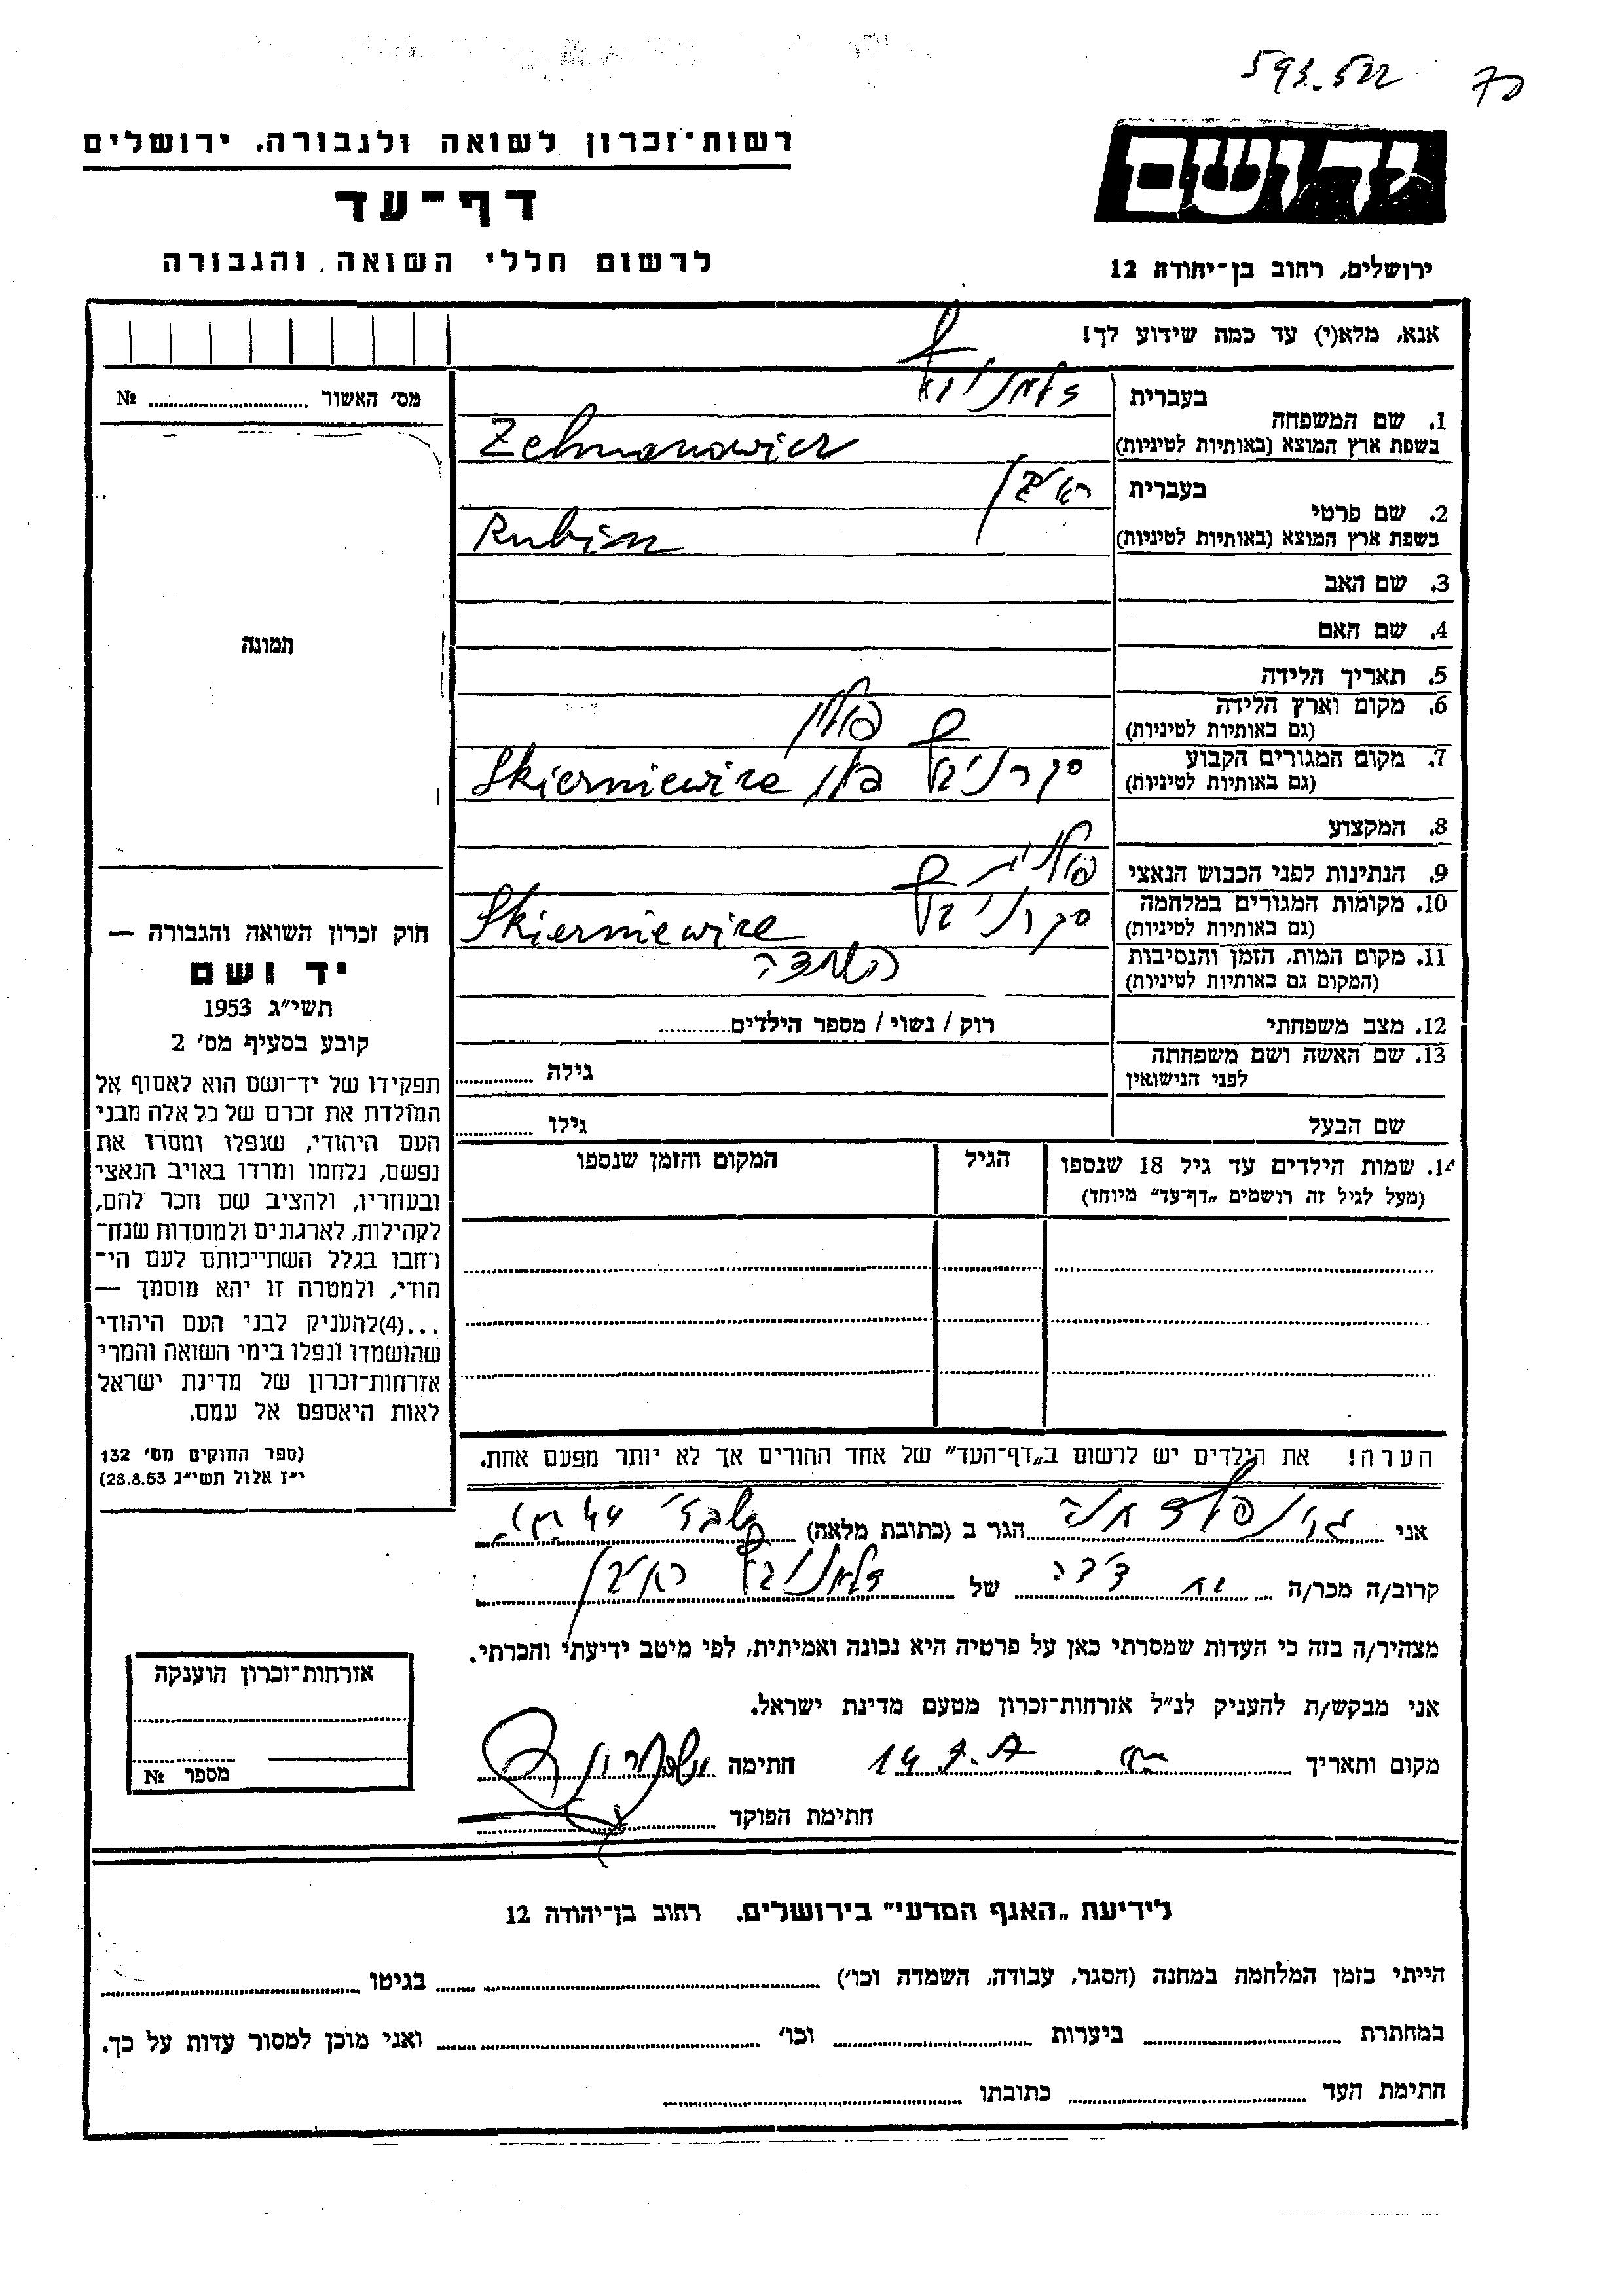 593522
70
רשות-זכרון לשואה ולגבורה, ירושלים
ידושם
דף-עד
לרשום חללי השואה והגבורה
ירושלים, רחוב בן-יהודה 12
אנא, מלא(י) עד כמה שידוע לך!
מס' האשור № ..........
תמונה
1. שם המשפחה
בעברית זלמנוביץ
בשפת ארץ המוצא (באותיות לטיניות) Zelmanowicz
2. שם פרטי
בעברית ראובן
בשפת ארץ המוצא (באותיות לטיניות) Rubin
3. שם האב
4. שם האם
5. תאריך הלידה
6. מקום וארץ הלידה פולין
(גם באותיות לטיניות)
7. מקום המגורים הקבוע סקרניביץ פולין Skierniewice
(גם באותיות לטיניות)
8. המקצוע
9. הנתינות לפני הכבוש הנאצי פולנית
10. מקומות המגורים במלחמה סקרניביץ Skierniewice
(גם באותיות לטיניות)
11. מקום המות, הזמן והנסיבות השמדה
(המקום גם באותיות לטיניות)
12. מצב משפחתי רוק / נשוי / מספר הילדים..........
13. שם האשה ושם משפחתה גילה ..........
לפני הנישואין
שם הבעל גילו ..........
14. שמות הילדים עד גיל 18 שנספו הגיל המקום והזמן שנספו
(מעל לגיל זה רושמים „דף-עד" מיוחד)
הערה! את הילדים יש לרשום ב„דף-העד" של אחד ההורים אך לא יותר מפעם אחת.
חוק זכרון השואה והגבורה —
יד ושם
תשי"ג 1953
קובע בסעיף מס' 2
תפקידו של יד-ושם הוא לאסוף אל
המולדת את זכרם של כל אלה מבני
העם היהודי, שנפלו ומסרו את
נפשם, נלחמו ומרדו באויב הנאצי
ובעוזריו, ולהציב שם וזכר להם,
לקהילות, לארגונים ולמוסדות שנח-
רבו בגלל השתייכותם לעם הי-
הודי, ולמטרה זו יהא מוסמך —
...(4)להעניק לבני העם היהודי
שהושמדו ונפלו בימי השואה והמרי
אזרחות-זכרון של מדינת ישראל
לאות היאספם אל עמם.
(ספר החוקים מס' 132
י"ז אלול תשי"ג 28.8.53)
אני הגר ב (כתובת מלאה)
קרוב/ה מכר/ה של זלמנוביץ ראובן
מצהיר/ה בזה כי העדות שמסרתי כאן על פרטיה היא נכונה ואמיתית, לפי מיטב ידיעתי והכרתי.
אני מבקש/ת להעניק לנ"ל אזרחות-זכרון מטעם מדינת ישראל.
מקום ותאריך חתימה
חתימת הפוקד
אזרחות-זכרון הוענקה
מספר №
לידיעת „האגף המדעי" בירושלים. רחוב בן-יהודה 12
הייתי בזמן המלחמה במחנה (הסגר, עבודה, השמדה וכו') .......... בגיטו ..........
במחתרת .......... ביערות .......... וכו' .......... ואני מוכן למסור עדות על כך.
חתימת העד .......... כתובתו ..........